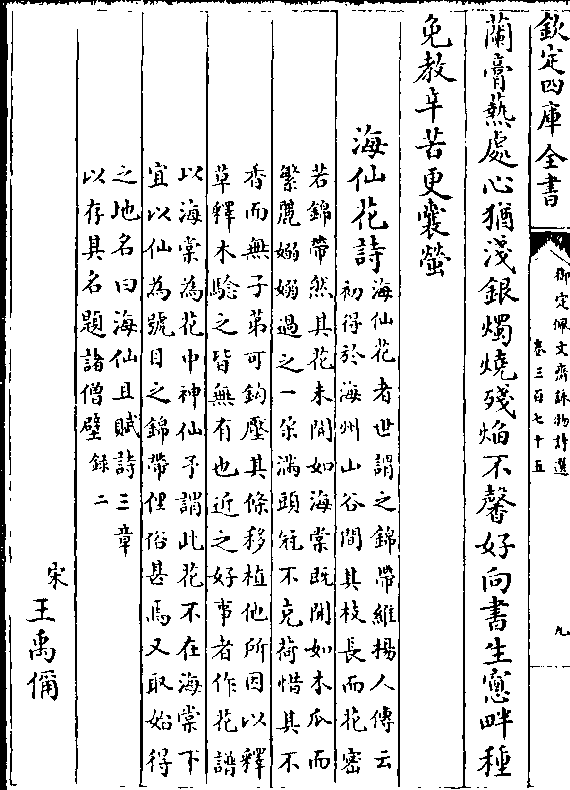 欽定四庫全書
御定佩文齋詠物詩選
卷三百七十五
九
蘭膏爇處心猶淺銀燭燒殘燄不馨好向書生窻畔種
免教辛苦更囊螢
海仙花詩
海仙花者世謂之錦帶維揚人傳云
初得於海州山谷間其枝長而花密
若錦帶然其花未開如海棠既開如木瓜而
繁麗嫋嫋過之一朶滿頭冠不克荷惜其不
香而無子弟可鈎壓其條移植他所因以釋
草釋木驗之皆無有也近之好事者作花譜
以海棠為花中神仙予謂此花不在海棠下
宜以仙為號目之錦帶俚俗甚焉又取始得
之地名曰海仙且賦詩三章
以存其名題諸僧壁
錄二
宋
王禹偁